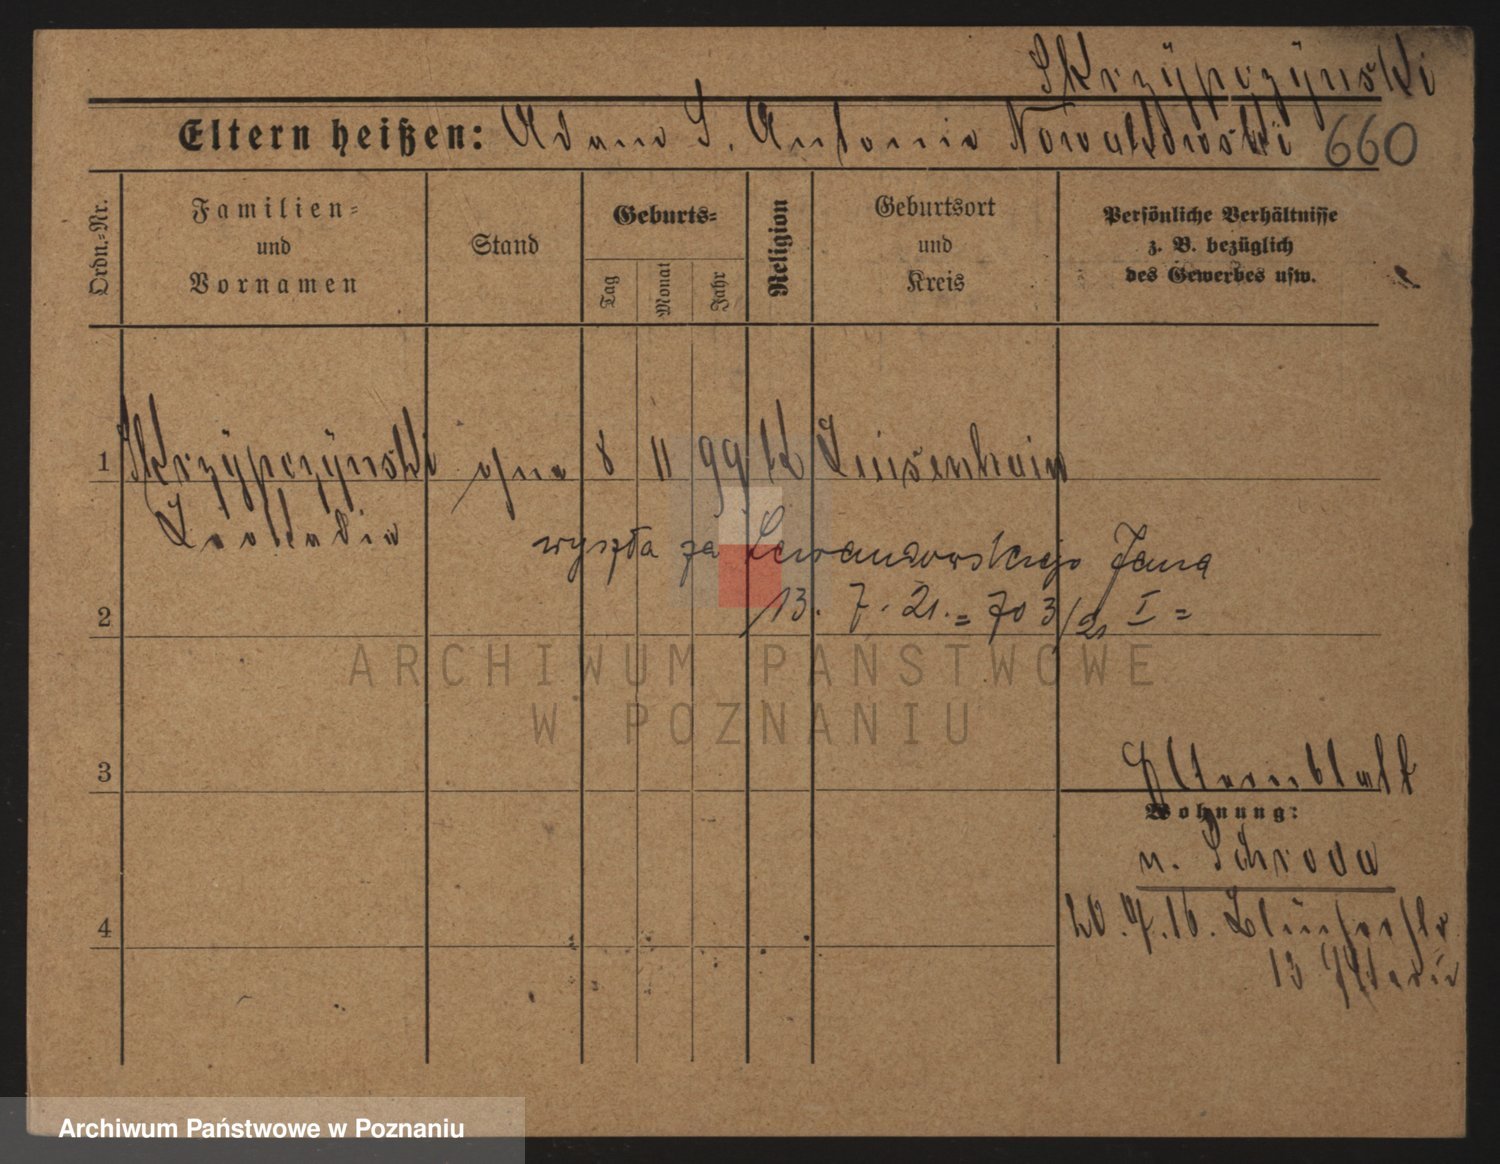 Skrzÿpczÿnski
Eltern heißen: Adam S. Antonie Nowakowski 660
Ordn.-Nr.
Familien-
und
Vornamen
Stand
Geburts-
Tag
Monat
Jahr
Religion
Geburtsort
und
Kreis
Persönliche Verhältnisse
z. B. bezüglich
des Gewerbes usw.
1 Skrzÿpczÿnski ohne 8 11 99 k Luisenhain
Leokadia
wyszła za Lewandowskiego Jana
2 13. 7. 21. = 703/21 I =
ARCHIWUM PAŃSTWOWE
W POZNANIU
3 Elternblatt
Wohnung:
n. Schroda
4 20.7.16.
13
Archiwum Państwowe w Poznaniu